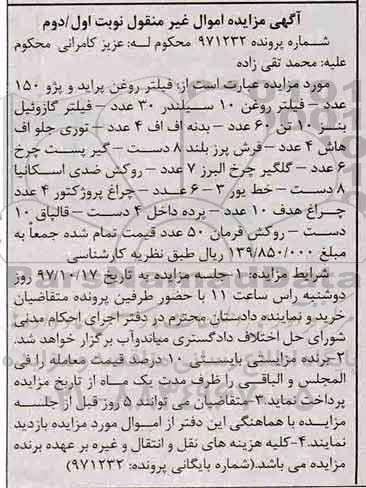 آگهی مزایده اموال غیر منقول نوبت اول/دوم
شماره پرونده ۹۷۱۲۳۲ محکوم له: عزیز کامرانی محکوم
علیه: محمد تقی زاده
مورد مزایده عبارت است از: فیلتر روغن پراید و پژو ۱۵۰
عدد – فیلتر روغن ۱۰ سیلندر ۳۰ عدد – فیلتر گازوئیل
بنز ۱۰ تن ۶۰ عدد – بدنه اف اف ۴ عدد – توری جلو اف
هاش ۴ عدد – فرش پرز بلند ۸ دست – گیر پست چرخ
۶ عدد – گلگیر چرخ البرز ۷ عدد – روکش صندی اسکانیا
۸ دست – خط یور ۳ – ۶ عدد – چراغ پروژکتور ۴ عدد
چراغ هدف ۱۰ عدد – پرده داخل ۴ دست – قالپاق ۱۰
دست – روکش فرمان ۵۰ عدد قیمت تمام شده جمعاً به
مبلغ ۱۳۹/۸۵۰/۰۰۰ ریال طبق نظریه کارشناسی
شرایط مزایده: ۱-جلسه مزایده به تاریخ ۹۷/۱۰/۱۷ روز
دوشنبه راس ساعت ۱۱ با حضور طرفین پرونده متقاضیان
خرید و نماینده دادستان محترم در دفتر اجرای احکام مدنی
شورای حل اختلاف دادگستری میاندوآب برگزار خواهد شد.
۲-برنده مزایستی بایستی ۱۰ درصد قیمت معامله را فی
المجلس و الباقی را ظرف مدت یک ماه از تاریخ مزایده
پرداخت نماید ۳-متقاضیان می توانند ۵ روز قبل از جلسه
مزایده با هماهنگی این دفتر از اموال مورد مزایده بازدید
نمایند.۴-کلیه هزینه های نقل و انتقال و غیره بر عهده برنده
مزایده می باشد.(شماره بایگانی پرونده: ۹۷۱۲۳۲)